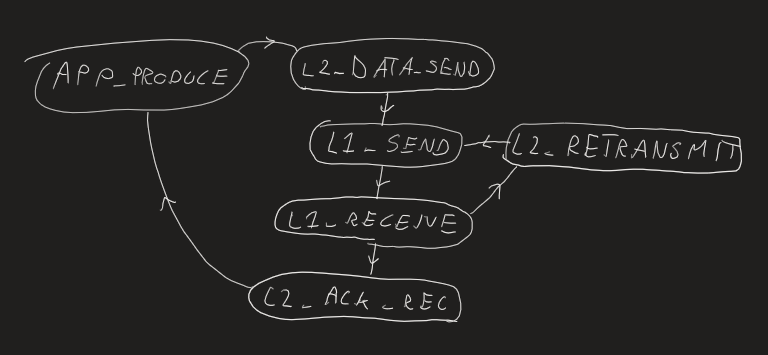 APP_PRODUCE
L2_DATA_SEND
L1_SEND
L2_RETRANSMIT
L1_RECEIVE
L2_ACK_REC